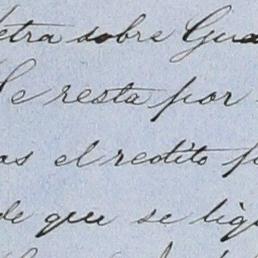 letra sobre Gua
Se resta por
as el redito p
de que se liq